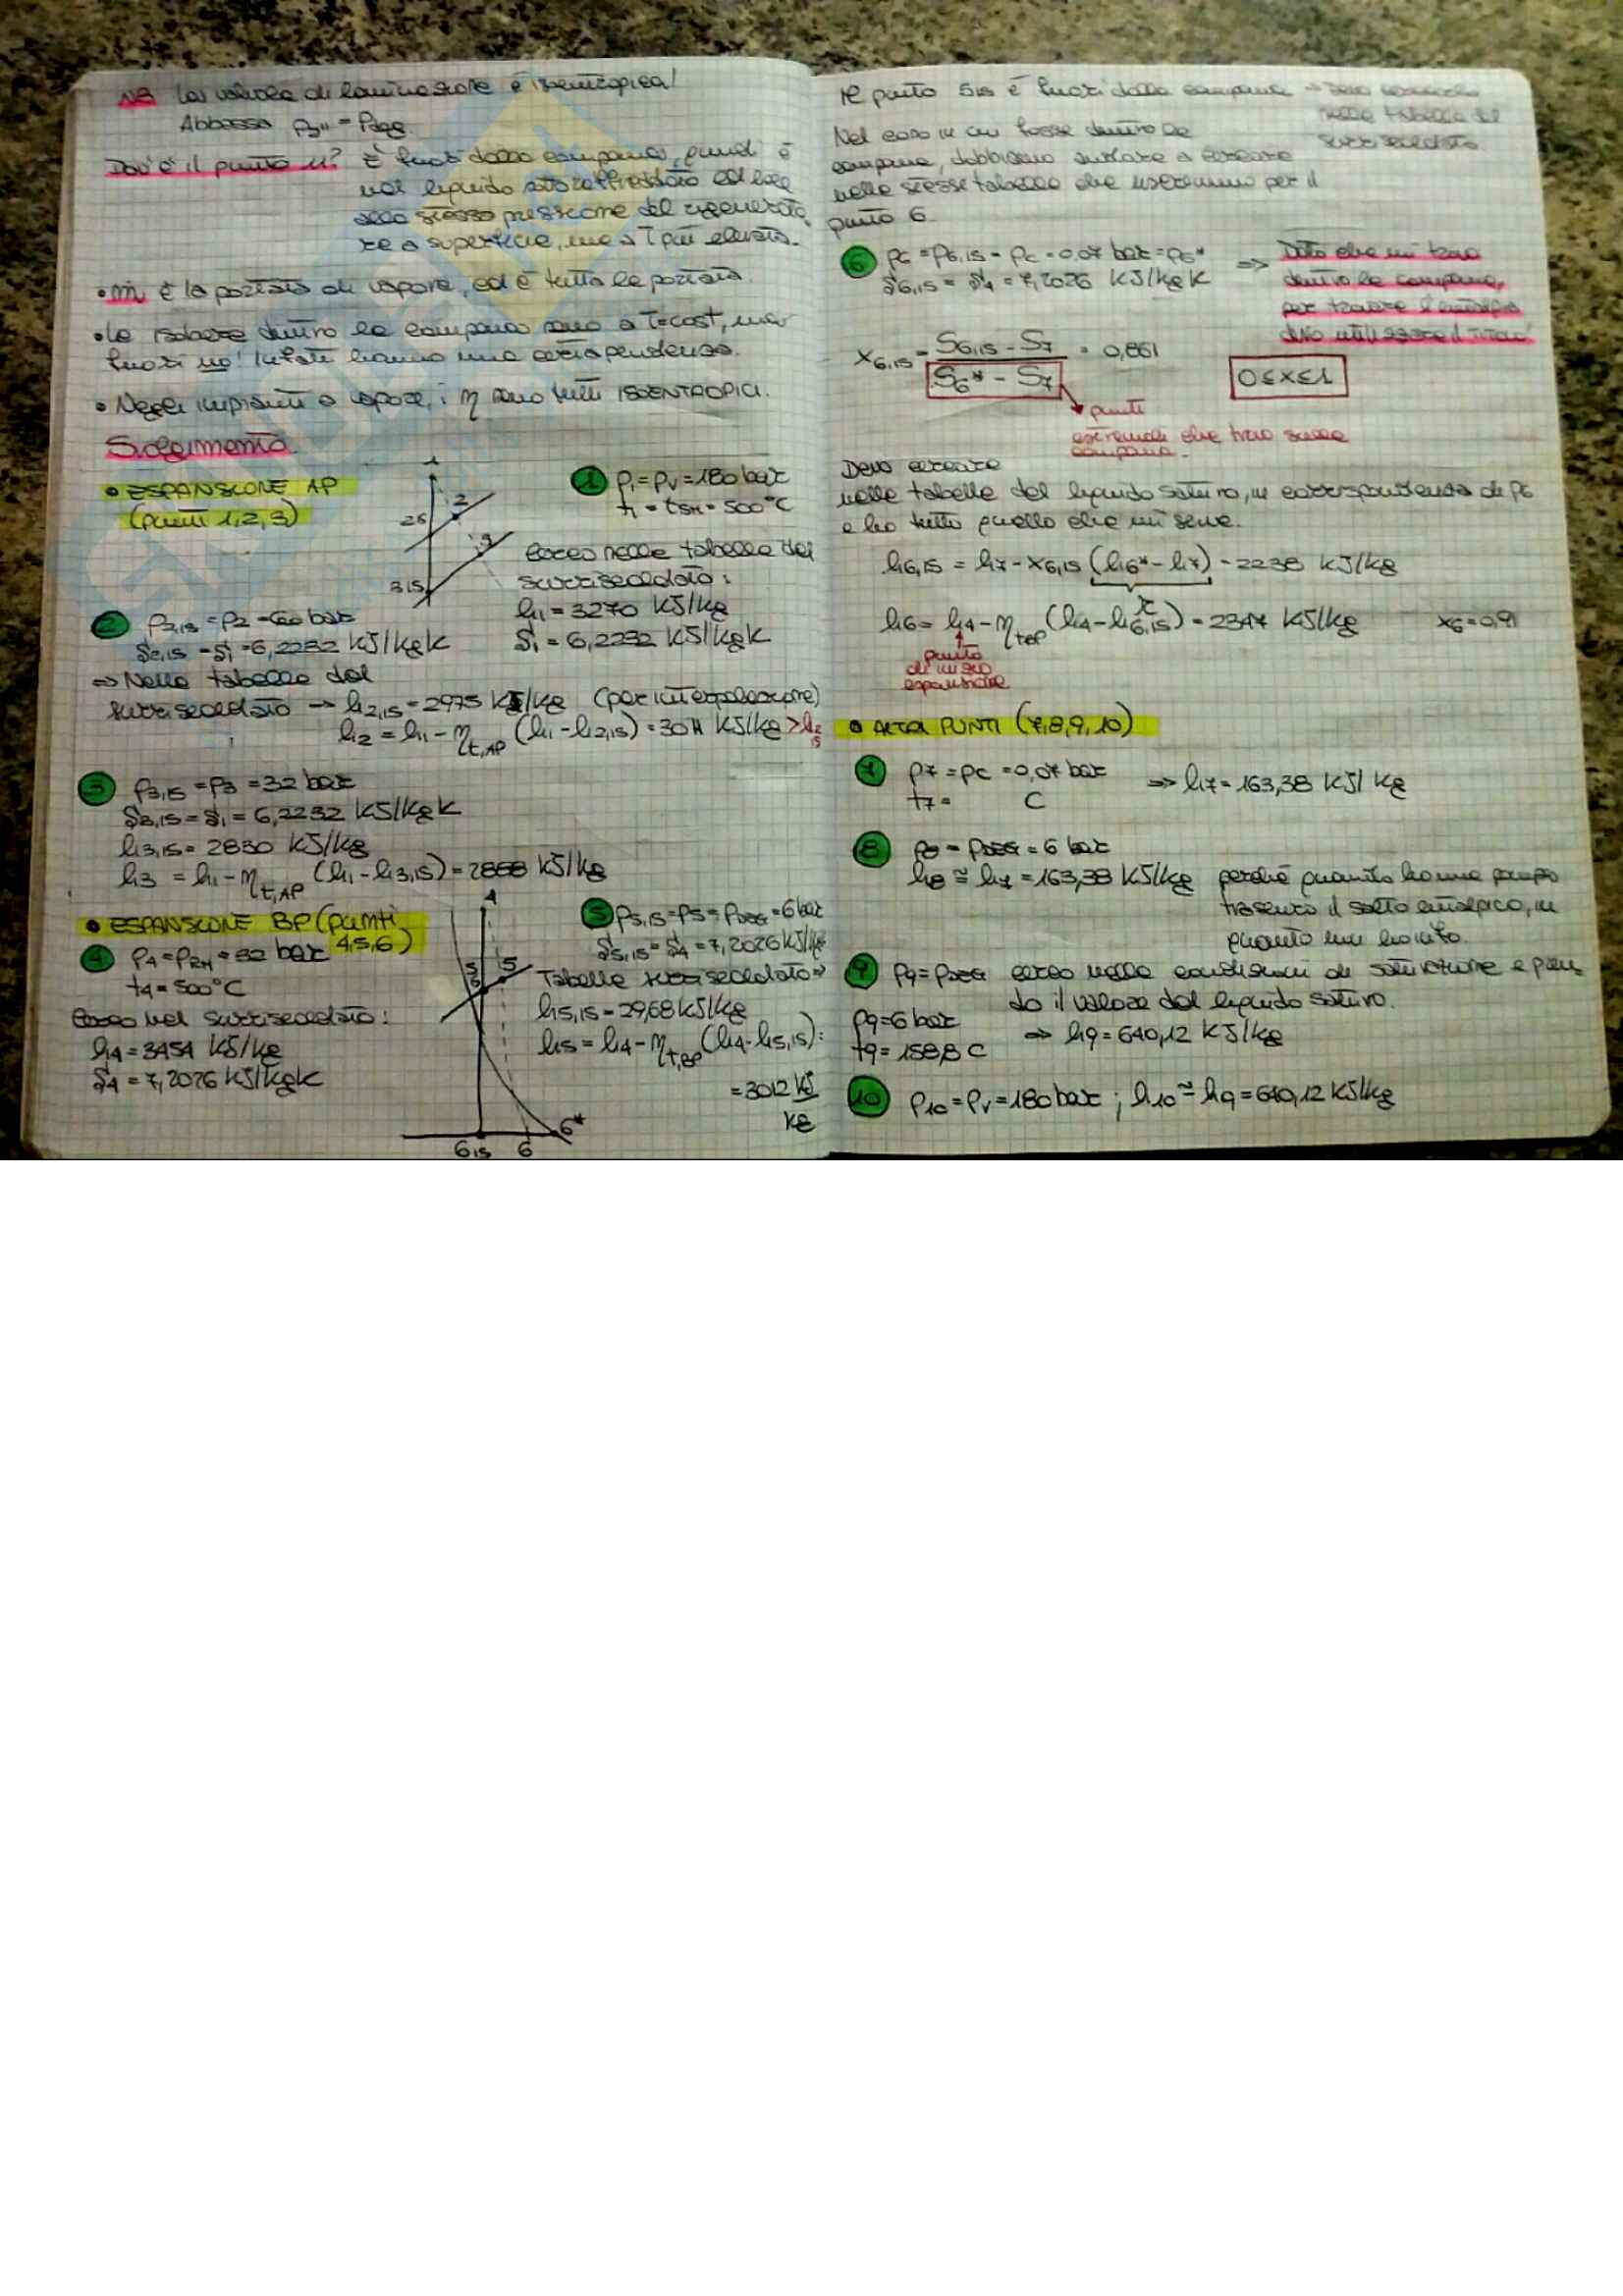 NB La valvola di laminazione è isentropica!
Abbassa p3'' = pdeg.
Dov'è il punto 11? È fuori dalla campana, quindi è
nel liquido sottoraffreddato ed ha
alla stessa pressione del rigenerato
re a superficie, ma a T più elevata.
• ṁ è la portata di vapore, ed è tutta la portata.
• Le isobare dentro la campana sono a T=cost, ma
fuori no! Infatti hanno una certa pendenza.
• Negli impianti a vapore, i η sono tutti ISOENTROPICI.
Svolgimento
• ESPANSIONE AP
(punti 1,2,3)
1
2
2s
3
3is
1 p1 = pv = 180 bar
t1 = tSH = 500°C
Cerco nelle tabelle del
surriscaldato:
h1 = 3270 kJ/kg
s1 = 6,2232 kJ/kgK
2 p2,is = p2 = 60 bar
s2,is = s1 = 6,2232 kJ/kgK
⇒ Nelle tabelle del
surriscaldato → h2,is = 2975 kJ/kg (per interpolazione)
h2 = h1 - ηt,AP (h1 - h2,is) = 3011 kJ/kg > h2is
3 p3,is = p3 = 32 bar
s3,is = s1 = 6,2232 kJ/kgK
h3,is = 2830 kJ/kg
h3 = h1 - ηt,AP (h1 - h3,is) = 2888 kJ/kg
• ESPANSIONE BP (punti
4,5,6)
4 p4 = pRH = 32 bar
t4 = 500°C
Cerco nel surriscaldato:
h4 = 3454 kJ/kg
s4 = 7,2026 kJ/kgK
4
5
5is
6is 6 6*
5 p5,is = p5 = pDEG = 6 bar
s5,is = s4 = 7,2026 kJ/kg
Tabelle surriscaldato ⇒
h5,is = 29,68 kJ/kg
h5 = h4 - ηt,BP (h4 - h5,is) =
= 3012 kJ/kg
Il punto 5is è fuori dalla campana → devo cercarlo
nelle tabelle del
surriscaldato
Nel caso in cui fosse dentro la
campana, dobbiamo andare a cercare
nelle stesse tabelle che useremmo per il
punto 6.
6 pc = p6,is = pc = 0,07 bar = p6*
s6,is = s4 = 7,2026 kJ/kgK
⇒ Dato che mi trovo
dentro la campana,
per trovare l'entalpia
devo utilizzare il titolo!
x6,is = (S6,is - S7) / (S6* - S7) = 0,861
0 ≤ x ≤ 1
punti
estremali che trovo sulla
campana.
Devo cercare
nelle tabelle del liquido saturo, in corrispondenza di p6
e ho tutto quello che mi serve.
h6,is = h7 - x6,is (h6* - h7) = 2238 kJ/kg
r
h6 = h4 - ηtBP (h4 - h6,is) = 2347 kJ/kg x6 = 0,91
punto
di inizio
espansione
• ALTRI PUNTI (7,8,9,10)
7 p7 = pc = 0,07 bar ⇒ h7 = 163,38 kJ/kg
t7 = C
8 p8 = pDEG = 6 bar
h8 ≅ h7 = 163,38 kJ/kg perché quando ho una pompa
trascuro il salto entalpico, in
quanto
9 p9 = pDEG cerco nelle condizioni di saturazione e pren
do il valore del liquido saturo.
p9 = 6 bar
t9 = 158,8 C
⇒ h9 = 640,12 kJ/kg
10 p10 = pv = 180 bar ; h10 ≅ h9 = 640,12 kJ/kg